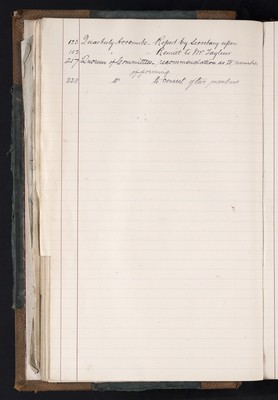 173 Quarterly Accounts – Report by Secretary upon
" – Remit to Mr Taylor
217 Quorum of Committee – recommendation as to number
of forming
223 do to consist of five members